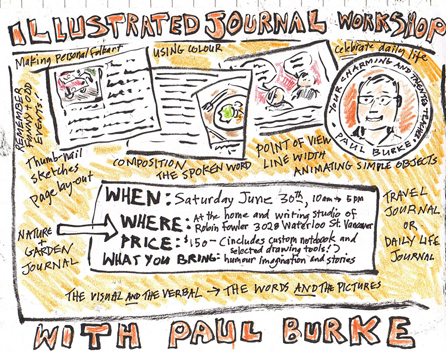 ILLUSTRATED JOURNAL WORKSHOP
Making Personal folkart
USING COLOUR
Celebrate daily life
REMEMBER
FUNNY + ODD
EVENTS
YOUR CHARMING AND TALENTED TEACHER
PAUL BURKE
Thumbnail
sketches
page layout
COMPOSITION
THE SPOKEN WORD
POINT OF VIEW
LINE WIDTH
ANIMATING SIMPLE OBJECTS
WHEN: Saturday June 30th, 10am → 5pm
WHERE: At the home and writing studio of
Robin Fowler 3028 Waterloo St. Vancouver
PRICE: $150- (includes custom notebook and
selected drawing tools!)
WHAT YOU BRING: humour imagination and stories
NATURE
+
GARDEN
JOURNAL
TRAVEL
JOURNAL
OR
DAILY LIFE
JOURNAL
THE VISUAL AND THE VERBAL → THE WORDS AND THE PICTURES
WITH PAUL BURKE